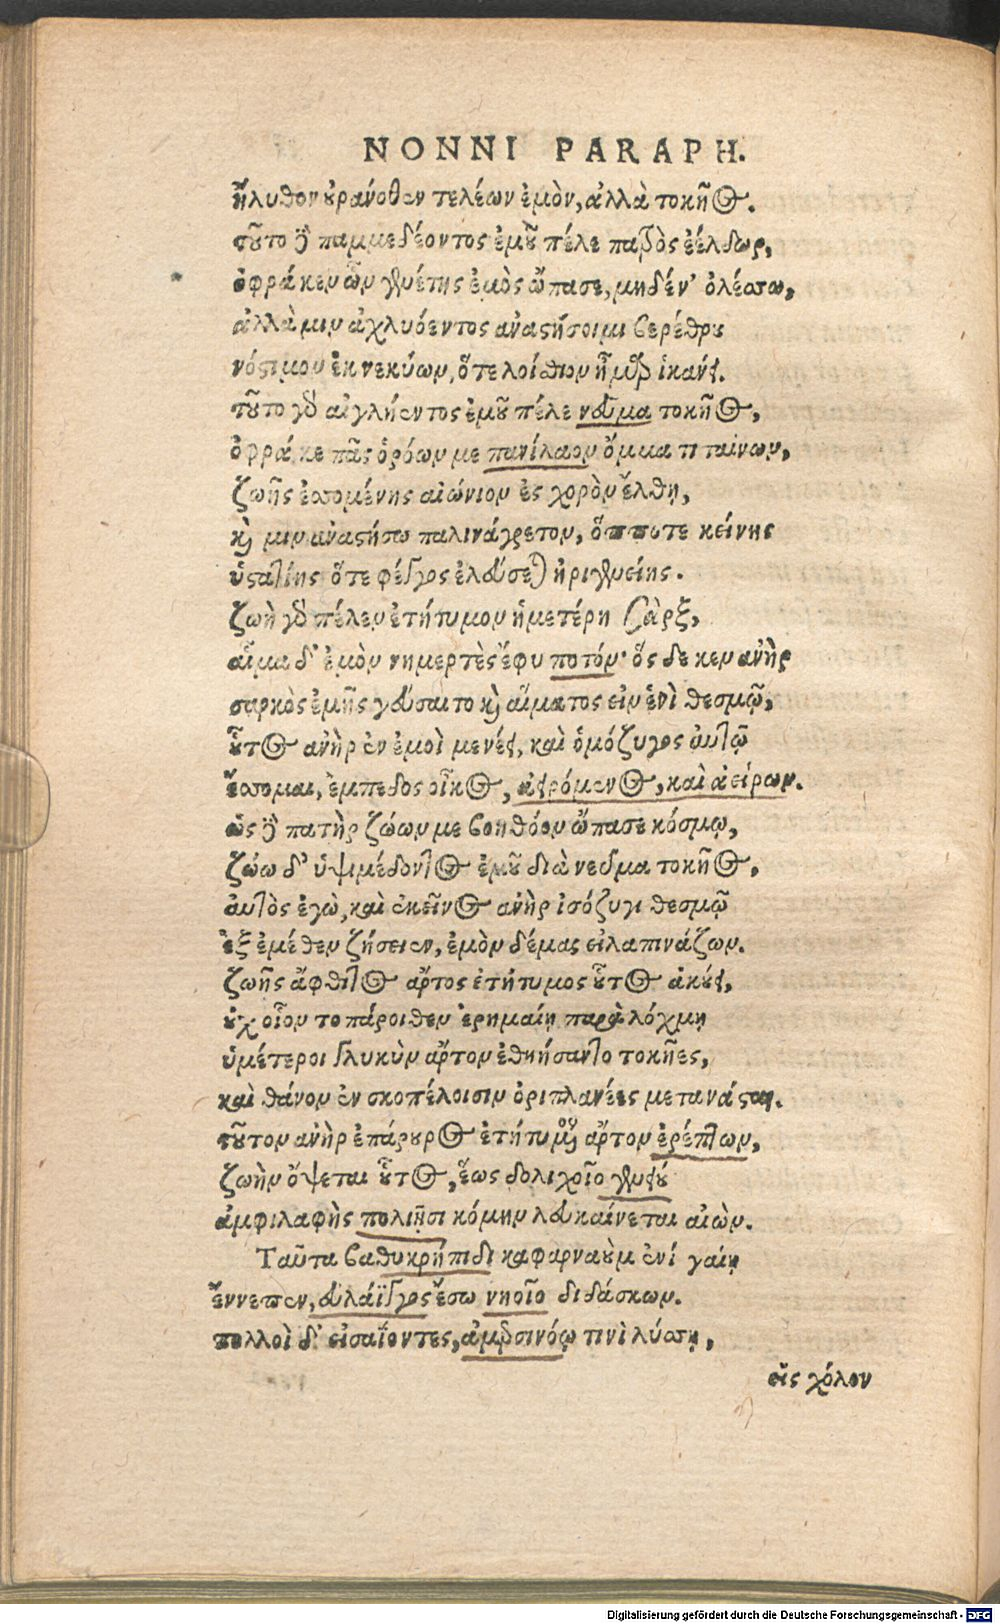 NONNI PARAPH.
ἤλυθον οὐρανόθεν τελέων ἐμὸν, ἀλλὰ τοκῆος.
τοῦτο γὰρ παμμεδέοντος ἐμοῦ πέλε πατρὸς ἐέλδωρ,
ὀφρά κεν ὧν γενέτης ἐμὸς ὤπασε, μηδέν' ὀλέσσω,
ἀλλὰ μιν ἀχλυόεντος ἀναστήσοιμι βερέθρου
νόστιμον ἐκ νεκύων, ὅτε λοίσθιον ἦμαρ ἱκάνει.
τοῦτο γὰρ αἰγλήεντος ἐμοῦ πέλε νεῦμα τοκῆος,
ὀφρά κε πᾶς ὁρόων με πανίλαον ὄμμα τιταίνων,
ζωῆς ἐσσομένης αἰώνιον ἐς χορὸν ἔλθῃ,
καί μιν ἀναστήσω παλινάγρετον, ὅππότε κείνης
ὑστατίης ὅτε φέγγος ἐλεύσεται ἠριγενείης.
ζωὴ γὰρ πέλεν ἐτήτυμον ἡμετέρη σὰρξ,
αἷμα δ' ἐμὸν νημερτὲς ἔφυ ποτόν· ὃς δε κεν ἀνὴρ
σαρκὸς ἐμῆς γεύσαιτο καὶ αἵματος εἰν ἑνὶ θεσμῷ,
οὗτος ἀνὴρ ἐν ἐμοὶ μενέει, καὶ ὁμόζυγος αὐτῷ
ἔσσομαι, ἔμπεδος οἶκος, ἀειρόμενος, καὶ ἀείρων.
ὡς γὰρ πατὴρ ζώων με βοηθόον ὤπασε κόσμῳ,
ζώω δ' ὑψιμέδοντος ἐμοῦ διὰ νεῦμα τοκῆος,
αὐτὸς ἐγὼ, καὶ ἐκεῖνος ἀνὴρ ἰσόζυγι θεσμῷ
ἐξ ἐμέθεν ζήσειεν, ἐμὸν δέμας εἰλαπινάζων.
ζωῆς ἄφθιτος ἄρτος ἐτήτυμος οὗτος ἀκούει,
οὐχ οἷον τοπάροιθεν ἐρημαίῃ παρὰ λόχμῃ
ὑμέτεροι γλυκὺν ἄρτον ἐθηήσαντο τοκῆες,
καὶ θάνον ἐν σκοπέλοισιν ὀριπλανέες μετανάσται.
τοῦτον ἀνὴρ ἐπάρουρος ἐτήτυμον ἄρτον ἐρέπτων,
ζωὴν ὄψεται οὗτος, ἕως δολιχοῖο γενείου
ἀμφιλαφὴς πολιῇσι κόμην λευκαίνεται αἰών.
Ταῦτα βαθυκρήπιδι καφαρναοὺμ ἐνὶ γαίῃ
ἔννεπεν, εὐλάϊγγος ἔσω νηοῖο διδάσκων.
πολλοὶ δ' εἰσαΐοντες, ἀμερσινόῳ τινὶ λύσσῃ,
εἰς χόλον
Digitalisierung gefördert durch die Deutsche Forschungsgemeinschaft - DFG